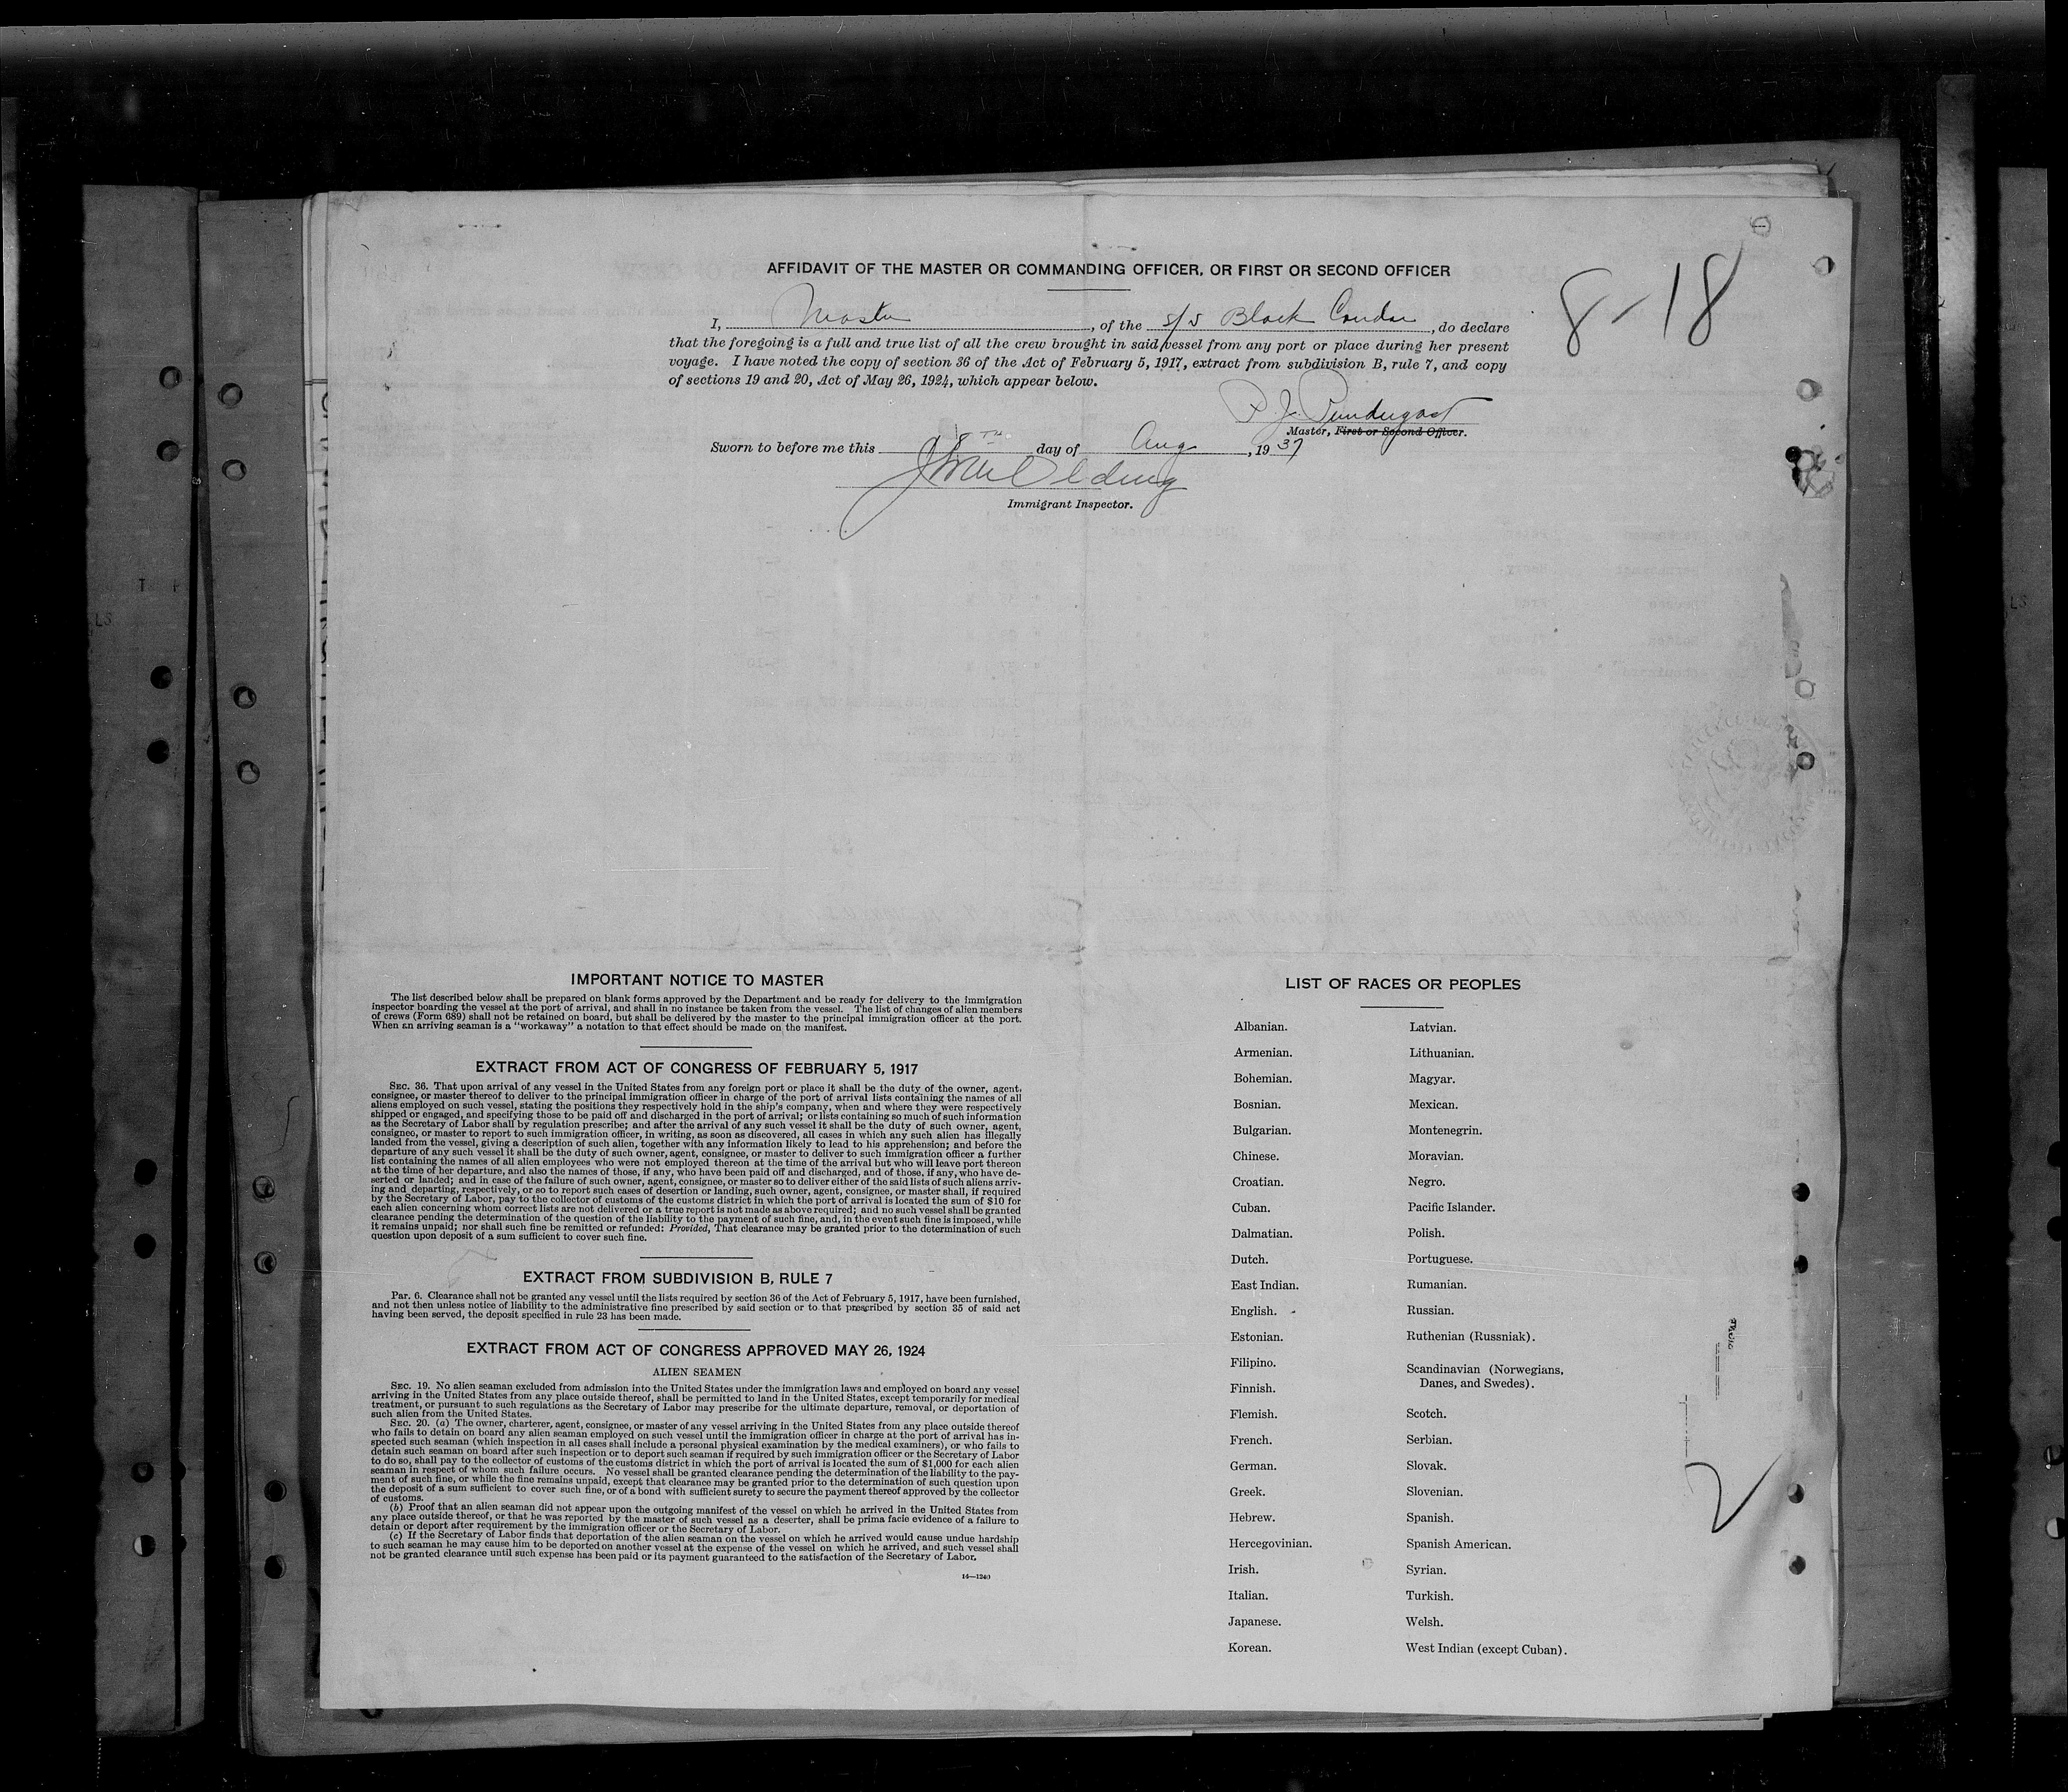 AFFIDAVIT OF THE MASTER OR COMMANDING OFFICER, OR FIRST OR SECOND OFFICER
8-18
I, Master, of the s/s Black Condor, do declare
that the foregoing is a full and true list of all the crew brought in said vessel from any port or place during her present
voyage. I have noted the copy of section 36 of the Act of February 5, 1917, extract from subdivision B, rule 7, and copy
of sections 19 and 20, Act of May 26, 1924, which appear below.
P J. Pendergast
Master, First or Second Officer.
Sworn to before me this 18TH day of Aug, 1937
Immigrant Inspector.
IMPORTANT NOTICE TO MASTER
The list described below shall be prepared on blank forms approved by the Department and be ready for delivery to the immigration
inspector boarding the vessel at the port of arrival, and shall in no instance be taken from the vessel. The list of changes of alien members
of crews (Form 689) shall not be retained on board, but shall be delivered by the master to the principal immigration officer at the port.
When an arriving seaman is a "workaway" a notation to that effect should be made on the manifest.
EXTRACT FROM ACT OF CONGRESS OF FEBRUARY 5, 1917
SEC. 36. That upon arrival of any vessel in the United States from any foreign port or place it shall be the duty of the owner, agent,
consignee, or master thereof to deliver to the principal immigration officer in charge of the port of arrival lists containing the names of all
aliens employed on such vessel, stating the positions they respectively hold in the ship's company, when and where they were respectively
shipped or engaged, and specifying those to be paid off and discharged in the port of arrival; or lists containing so much of such information
as the Secretary of Labor shall by regulation prescribe; and after the arrival of any such vessel it shall be the duty of such owner, agent,
consignee, or master to report to such immigration officer, in writing, as soon as discovered, all cases in which any such alien has illegally
landed from the vessel, giving a description of such alien, together with any information likely to lead to his apprehension; and before the
departure of any such vessel it shall be the duty of such owner, agent, consignee, or master to deliver to such immigration officer a further
list containing the names of all alien employees who were not employed thereon at the time of the arrival but who will leave port thereon
at the time of her departure, and also the names of those, if any, who have been paid off and discharged, and of those, if any, who have de-
serted or landed; and in case of the failure of such owner, agent, consignee, or master so to deliver either of the said lists of such aliens arriv-
ing and departing, respectively, or so to report such cases of desertion or landing, such owner, agent, consignee, or master shall, if required
by the Secretary of Labor, pay to the collector of customs of the customs district in which the port of arrival is located the sum of $10 for
each alien concerning whom correct lists are not delivered or a true report is not made as above required; and no such vessel shall be granted
clearance pending the determination of the question of the liability to the payment of such fine, and, in the event such fine is imposed, while
it remains unpaid; nor shall such fine be remitted or refunded: Provided, That clearance may be granted prior to the determination of such
question upon deposit of a sum sufficient to cover such fine.
EXTRACT FROM SUBDIVISION B, RULE 7
Par. 6. Clearance shall not be granted any vessel until the lists required by section 36 of the Act of February 5, 1917, have been furnished,
and not then unless notice of liability to the administrative fine prescribed by said section or to that prescribed by section 35 of said act
having been served, the deposit specified in rule 23 has been made.
EXTRACT FROM ACT OF CONGRESS APPROVED MAY 26, 1924
ALIEN SEAMEN
SEC. 19. No alien seaman excluded from admission into the United States under the immigration laws and employed on board any vessel
arriving in the United States from any place outside thereof, shall be permitted to land in the United States, except temporarily for medical
treatment, or pursuant to such regulations as the Secretary of Labor may prescribe for the ultimate departure, removal, or deportation of
such alien from the United States.
SEC. 20. (a) The owner, charterer, agent, consignee, or master of any vessel arriving in the United States from any place outside thereof
who fails to detain on board any alien seaman employed on such vessel until the immigration officer in charge at the port of arrival has in-
spected such seaman (which inspection in all cases shall include a personal physical examination by the medical examiners), or who fails to
detain such seaman on board after such inspection or to deport such seaman if required by such immigration officer or the Secretary of Labor
to do so, shall pay to the collector of customs of the customs district in which the port of arrival is located the sum of $1,000 for each alien
seaman in respect of whom such failure occurs. No vessel shall be granted clearance pending the determination of the liability to the pay-
ment of such fine, or while the fine remains unpaid, except that clearance may be granted prior to the determination of such question upon
the deposit of a sum sufficient to cover such fine, or of a bond with sufficient surety to secure the payment thereof approved by the collector
of customs.
(b) Proof that an alien seaman did not appear upon the outgoing manifest of the vessel on which he arrived in the United States from
any place outside thereof, or that he was reported by the master of such vessel as a deserter, shall be prima facie evidence of a failure to
detain or deport after requirement by the immigration officer or the Secretary of Labor.
(c) If the Secretary of Labor finds that deportation of the alien seaman on the vessel on which he arrived would cause undue hardship
to such seaman he may cause him to be deported on another vessel at the expense of the vessel on which he arrived, and such vessel shall
not be granted clearance until such expense has been paid or its payment guaranteed to the satisfaction of the Secretary of Labor.
14—1240
LIST OF RACES OR PEOPLES
Albanian.
Armenian.
Bohemian.
Bosnian.
Bulgarian.
Chinese.
Croatian.
Cuban.
Dalmatian.
Dutch.
East Indian.
English.
Estonian.
Filipino.
Finnish.
Flemish.
French.
German.
Greek.
Hebrew.
Hercegovinian.
Irish.
Italian.
Japanese.
Korean.
Latvian.
Lithuanian.
Magyar.
Mexican.
Montenegrin.
Moravian.
Negro.
Pacific Islander.
Polish.
Portuguese.
Rumanian.
Russian.
Ruthenian (Russniak).
Scandinavian (Norwegians,
Danes, and Swedes).
Scotch.
Serbian.
Slovak.
Slovenian.
Spanish.
Spanish American.
Syrian.
Turkish.
Welsh.
West Indian (except Cuban).
2